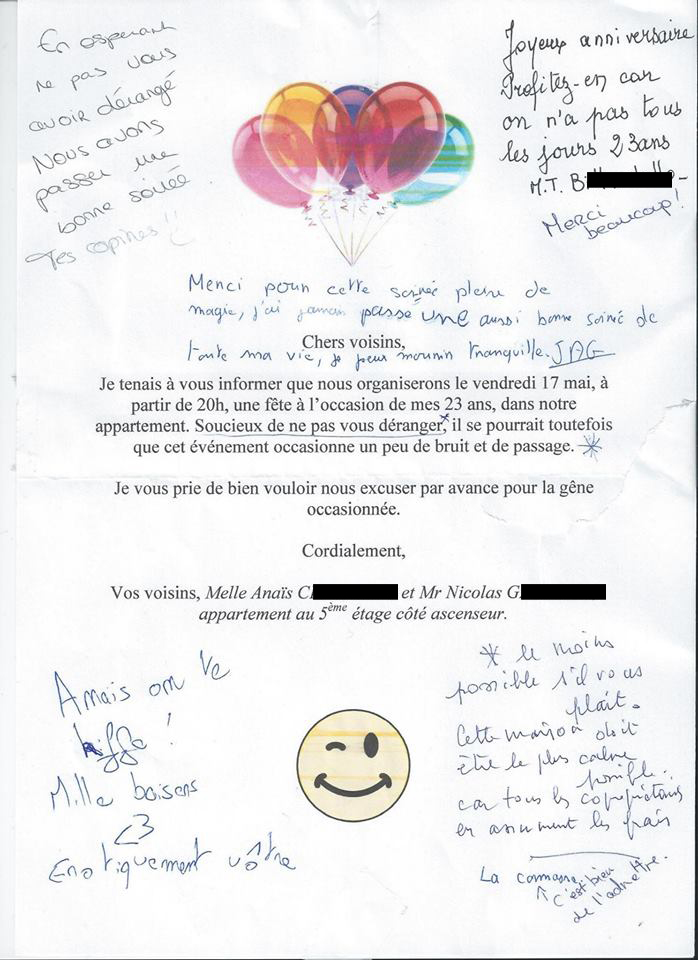 En esperant
ne pas vous
avoir dérangé
Nous avons
passer une
bonne soirée
Tes copines !!
Joyeux anniversaire
Profitez-en car
on n'a pas tous
les jours 23ans
M.T. B
Merci
beaucoup!
Menci pour cette soirée pleine de
magie, j'ai jamais passé une aussi bonne soirée de
toute ma vie, je peux mourir tranquille. JAG
Chers voisins,
Je tenais à vous informer que nous organiserons le vendredi 17 mai, à
partir de 20h, une fête à l'occasion de mes 23 ans, dans notre
appartement. Soucieux de ne pas vous déranger,* il se pourrait toutefois
que cet événement occasionne un peu de bruit et de passage. *
Je vous prie de bien vouloir nous excuser par avance pour la gêne
occasionnée.
Cordialement,
Vos voisins, Melle Anaïs C et Mr Nicolas G.
appartement au 5ème étage côté ascenseur.
Anais on te
kiffe !
Mille baisers
<3
Erotiquement vôtre
* le moins
possible s'il vous
plait.
Cette maison doit
être le plus calme
possible.
car tous les copropriétaires
en assument les frais
La connasse
↑ c'est bien
de l'admettre.